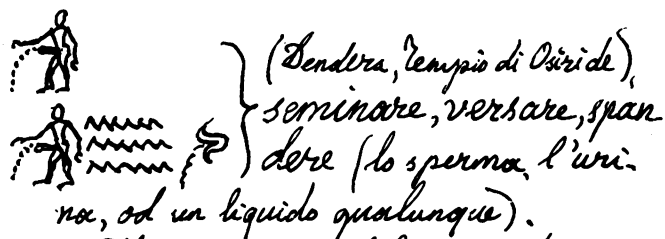 (Dendera, Tempio di Osiride),
seminare, versare, span
dere (lo sperma, l'uri-
na, od un liquido qualunque).